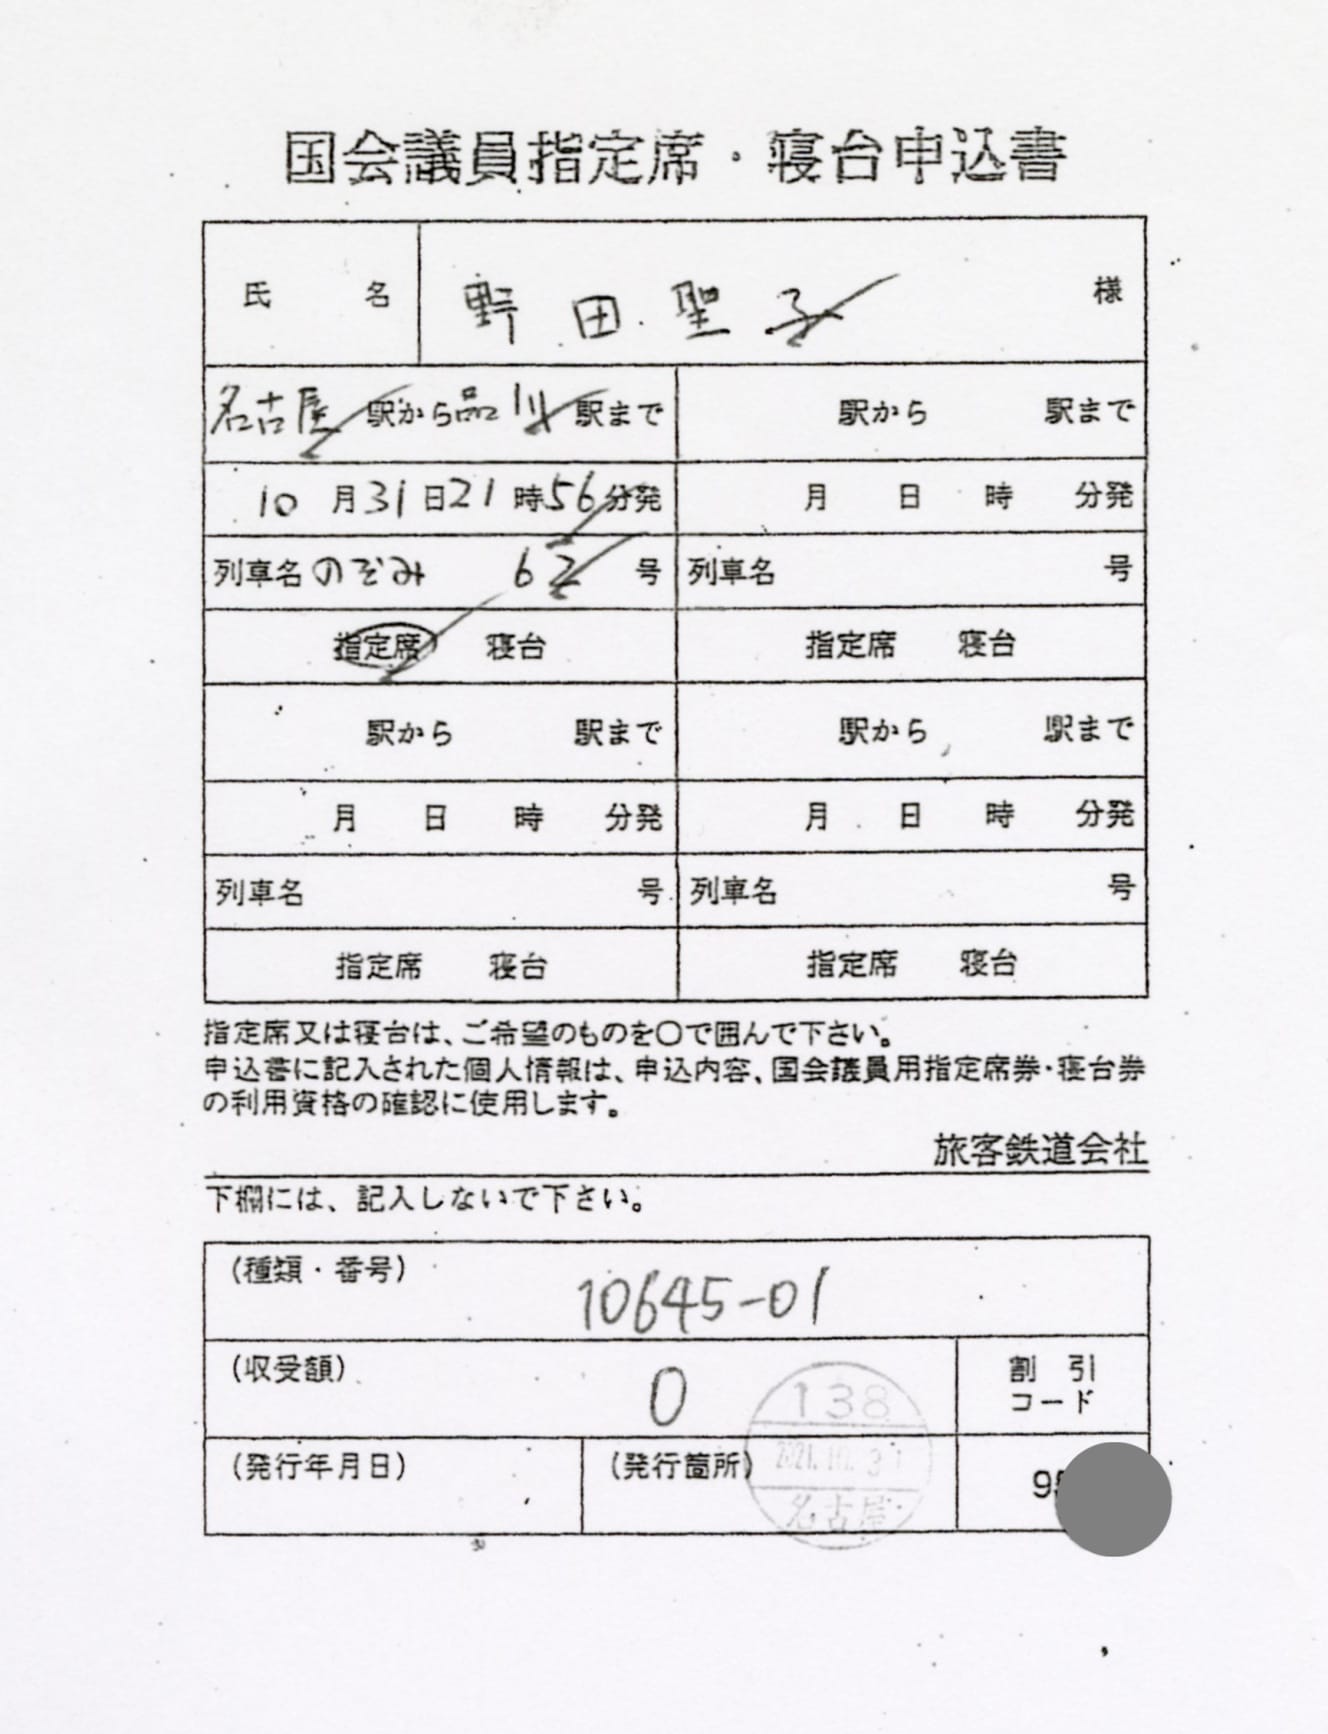 国会議員指定席・寝台申込書
氏 名 野田聖子 様
名古屋駅から品川駅まで 駅から 駅まで
10月31日21時56分発 月 日 時 分発
列車名のぞみ 62号 列車名 号
指定席 寝台 指定席 寝台
駅から 駅まで 駅から 駅まで
月 日 時 分発 月 日 時 分発
列車名 号 列車名 号
指定席 寝台 指定席 寝台
指定席又は寝台は、ご希望のものを○で囲んで下さい。
申込書に記入された個人情報は、申込内容、国会議員用指定席券・寝台券
の利用資格の確認に使用します。
旅客鉄道会社
下欄には、記入しないで下さい。
(種類・番号) 10645-01
(収受額) 0 割引
コード
(発行年月日) (発行箇所)
138
2021.10.31
名古屋